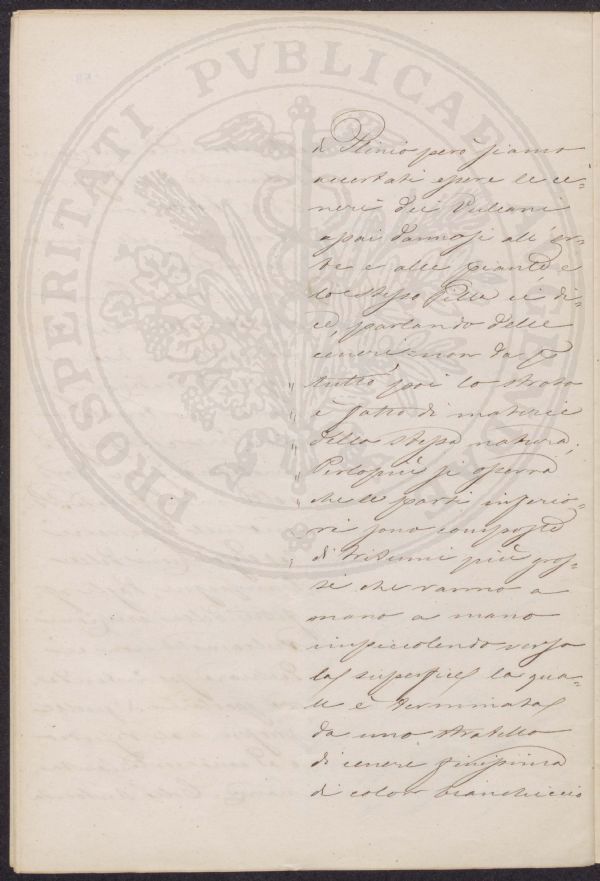 PROSPERITATI PVBLICAE AVGENDAE
di Plinio però siamo
accertati essere le ce-
neri dei Vulcani
assai dannosi all'er-
be e alle piante e
lo stesso Pilla ci di-
ce, parlando delle
ceneri = non da per
" tutto poi lo strato
" è fatto di materie
" della stessa natura;
" Perlopiù si osserva
" che le parti inferio-
" ri sono composte
" di tritumi più gros-
si che vanno a
mano a mano
impiccolendo verso
la superficie la qua-
le è terminata
da uno stratello
di cenere finissima
di color bianchiccio